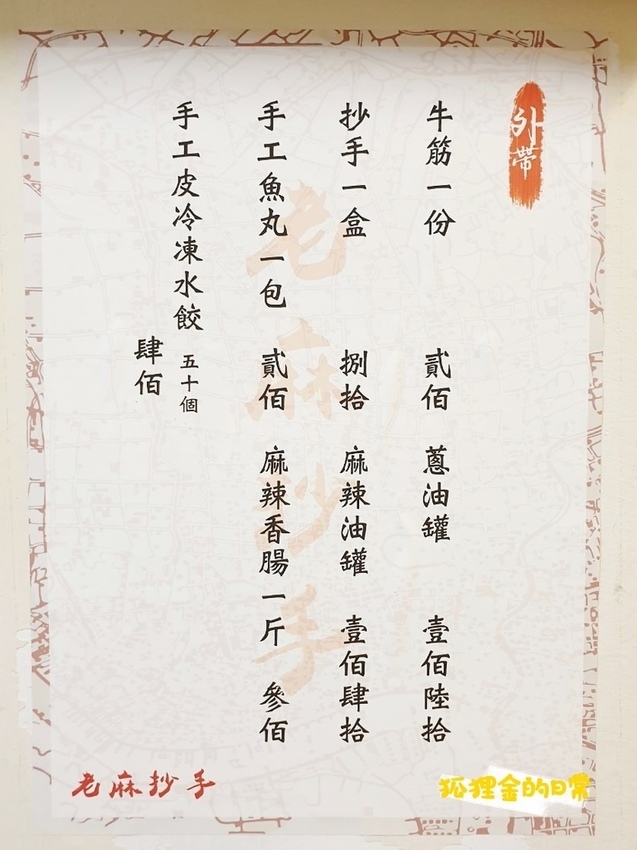 外帶
牛筋一份 貳佰 蔥油罐 壹佰陸拾
抄手一盒 捌拾 麻辣油罐 壹佰肆拾
手工魚丸一包 貳佰 麻辣香腸一斤 參佰
手工皮冷凍水餃 五十個
肆佰
老麻抄手
老麻抄手
狐狸金的日常